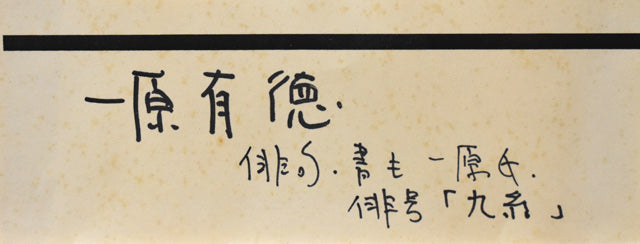 一原有徳.
俳句.書も一原氏.
俳号「九糸」